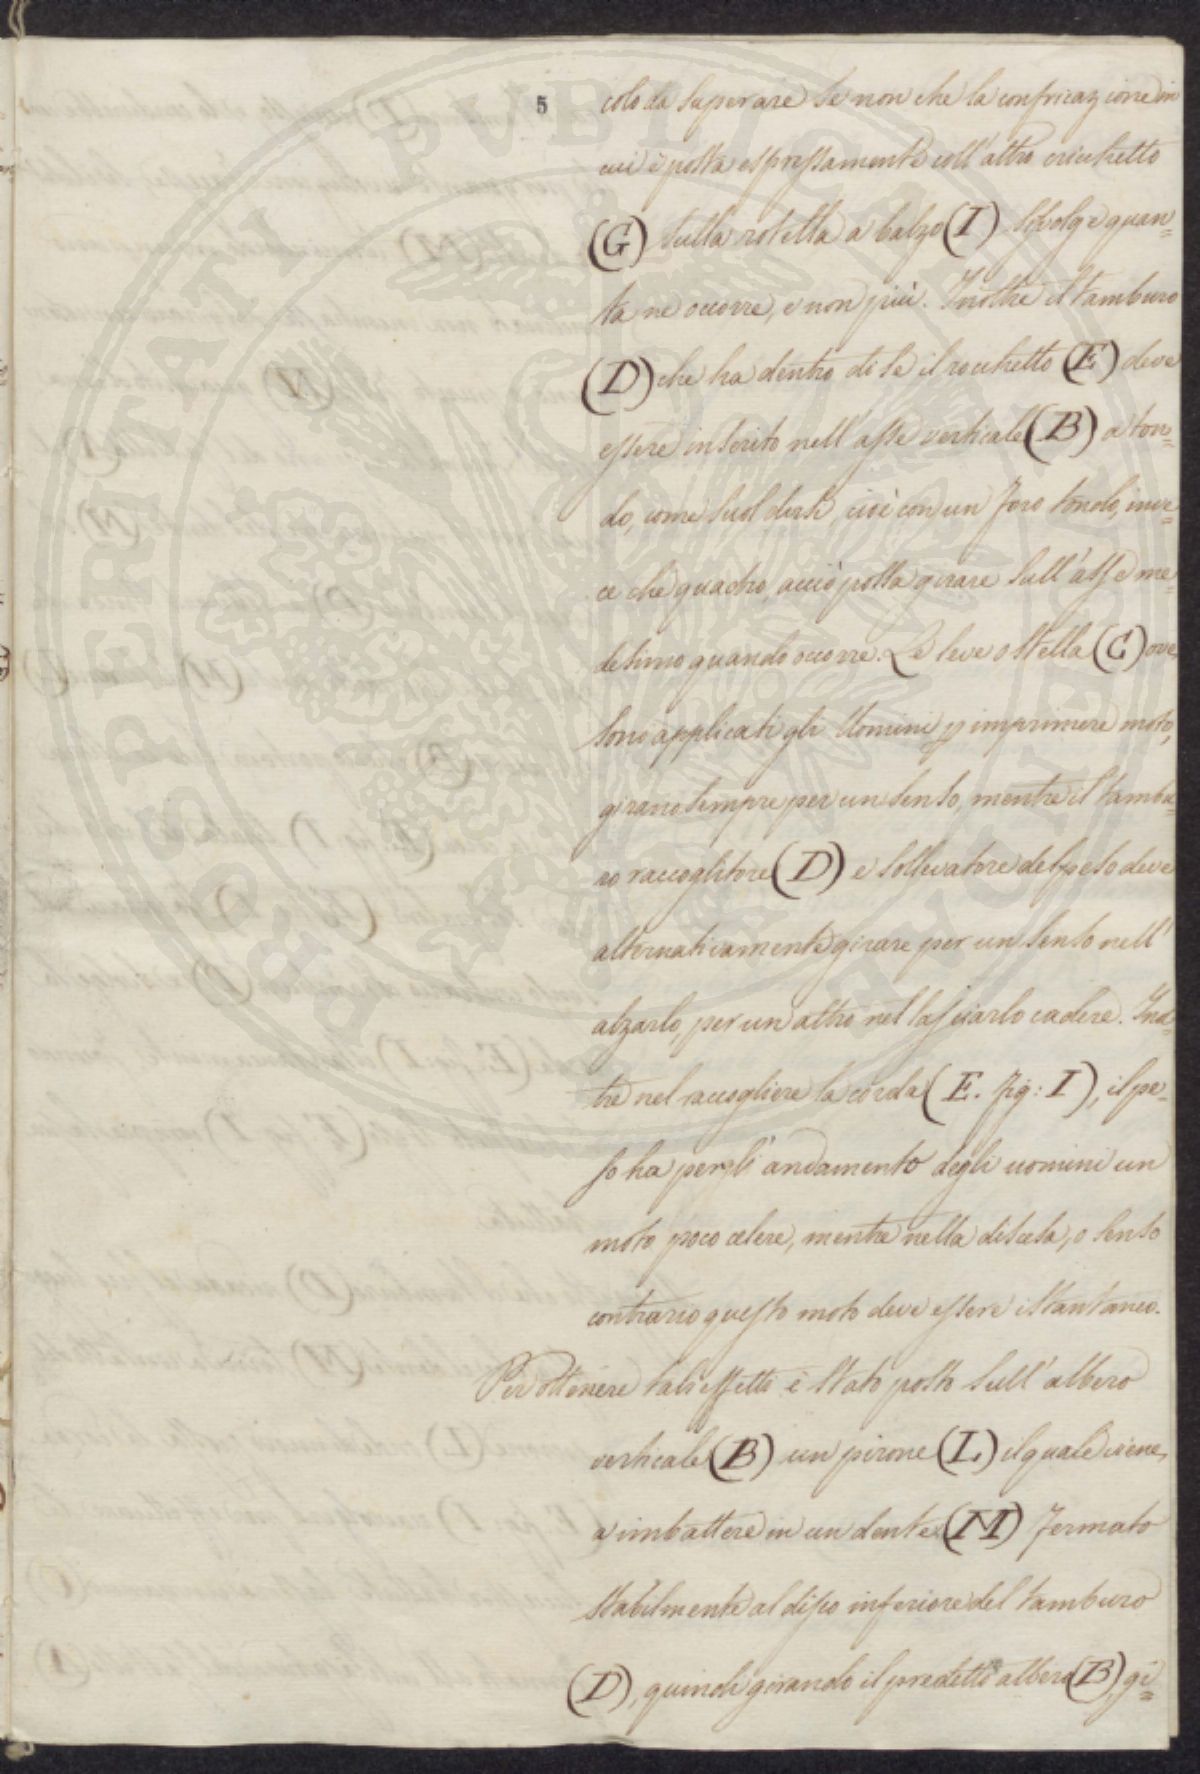 5
colo da superare se non che la confricazione in
cui è posta espressamente coll'altro cricchetto
(G) sulla rotella a balzo (I) svolge quan=
ta ne occorre, e non più. Inoltre il tamburo
(D) che ha dentro di se il rocchetto (E) deve
essere inserito nell'asse verticale (B) a ton=
do, come suol dirsi, cioè con un foro tondo, inve=
ce che quadro, acciò possa girare sull'asse me=
desimo quando occorre. Le leve o stella (C) ove
sono applicati gli Uomini p imprimere moto,
girano sempre per un senso, mentre il tambu=
ro raccoglitore (D) e sollevatore del peso deve
alternativamente girare per un senso nell'
alzarlo, per un altro nel lasciarlo cadere. Inol=
tre nel raccogliere la corda (E. fig: I), il pe=
so ha per gl'andamento degli uomini un
moto poco celere, mentre nella discesa, o senso
contrario questo moto deve essere istantaneo.
Per ottenere tali effetti è stato posto sull'albero
verticale (B) un pirone (L) il quale viene
a imbattere in un dente (M) fermato
stabilmente al disco inferiore del tamburo
(D), quindi girando il predetto albero (B), gi=
PROSPERITATI PUBLICAE